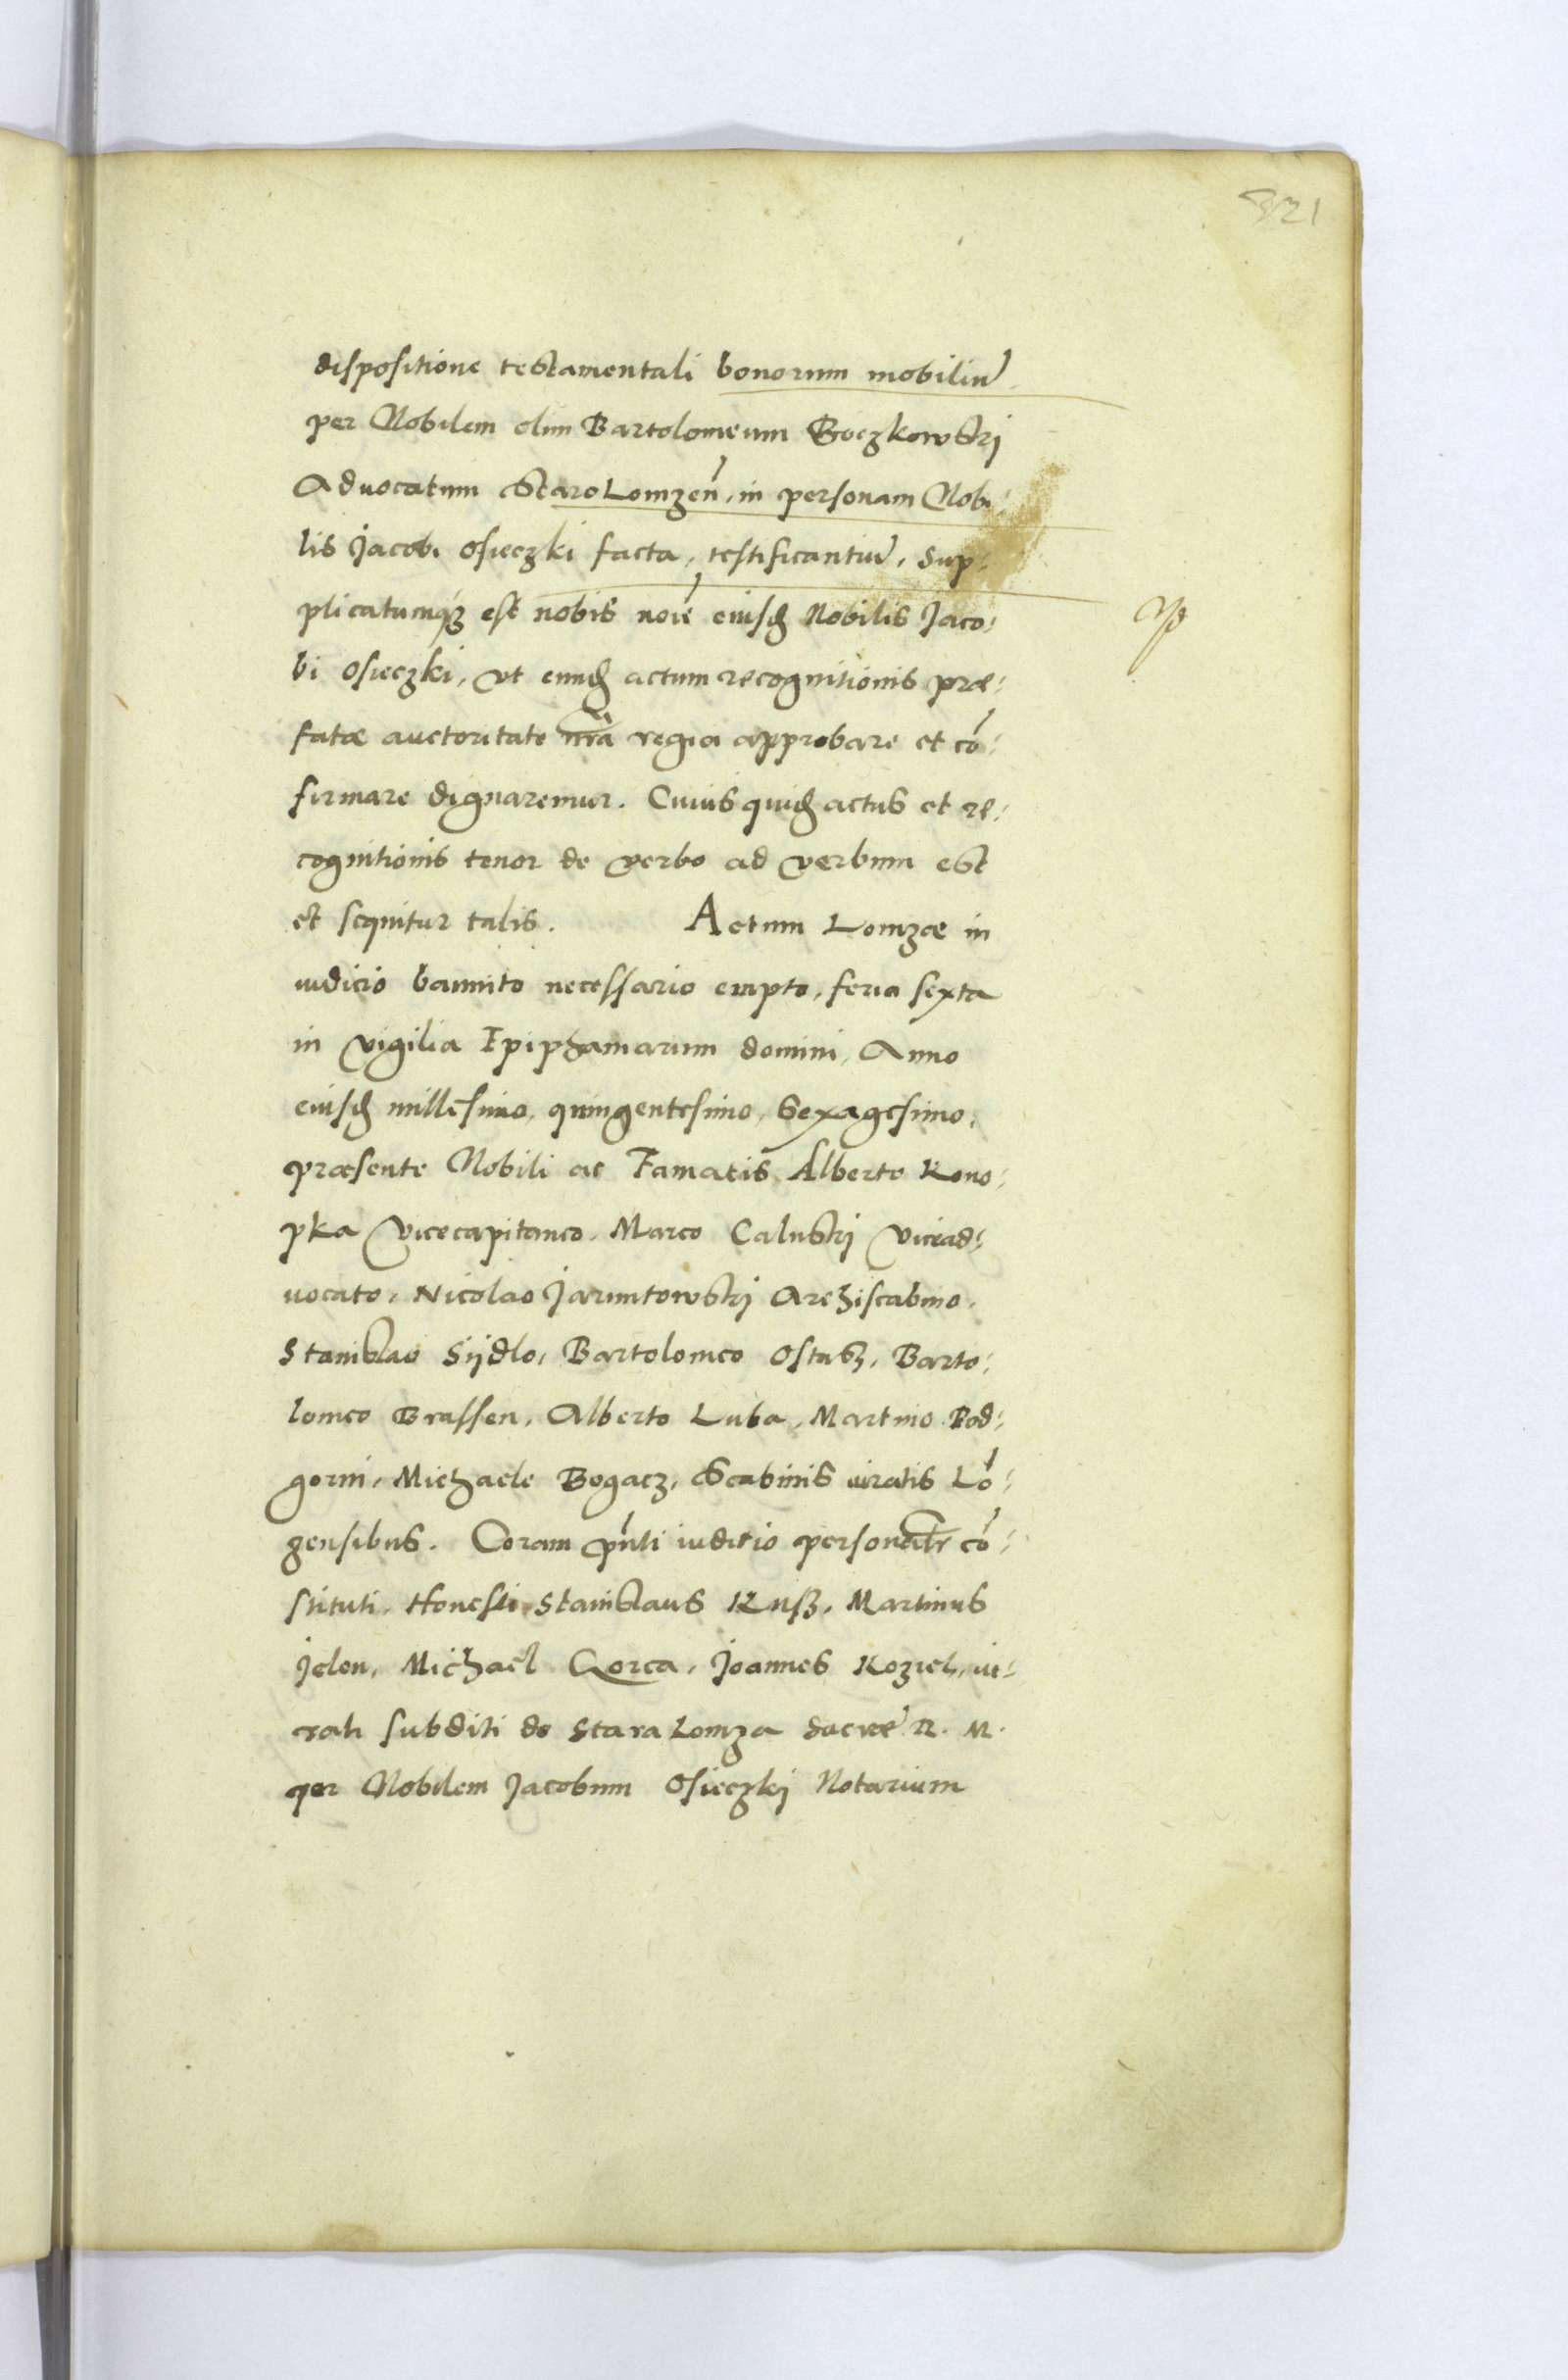 321
dispositione testamentali bonorum mobiliu̅
per Nobilem olim Bartolomeum Boczkowskj
Aduocatum StaroLomzen̅, in personam Nobi:
lis Jacobi Osieczki facta, testificantiu̅, Sup:
plicatumq́ʒ est nobis noi̅e eiusd̅ Nobilis Jaco:
bi Osieczki, vt eund̅ actum recognitionis præ:
fatæ auctoritate nr̅a regia approbare et co̅:
firmare dignaremur. Cuius quid̅ actus et re:
cognitionis tenor de verbo ad verbum est
et sequitur talis. Actum Lomzæ in
iudicio bannito necessario empto, feria sexta
in vigilia Epiphaniarum domini, Anno
eiusd̅ millesimo, quingentesimo, Sexagesimo,
præsente Nobili ac Famatis Alberto Kono:
pka Vicecapitaneo, Marco Caluskj Vicead:
uocato, Nicolao Jaruntowskj Archiscabino,
Stanislao Sijdlo, Bartolomeo Ostasz, Barto:
lomeo Brassen, Alberto Luba, Martino Pod:
gorni, Michaele Bogacz, Scabinis iuratis Lo̅:
zensibus. Coram pn̅ti iudicio personalr̅ co̅:
stituti, Honesti Stanislaus Kusz, Martinus
Jelen, Michael Gorca, Joannes Koziel, iu:
rati subditi de Stara Lomza Sacræ R. M.
per Nobilem Jacobum Osieczkj Notarium